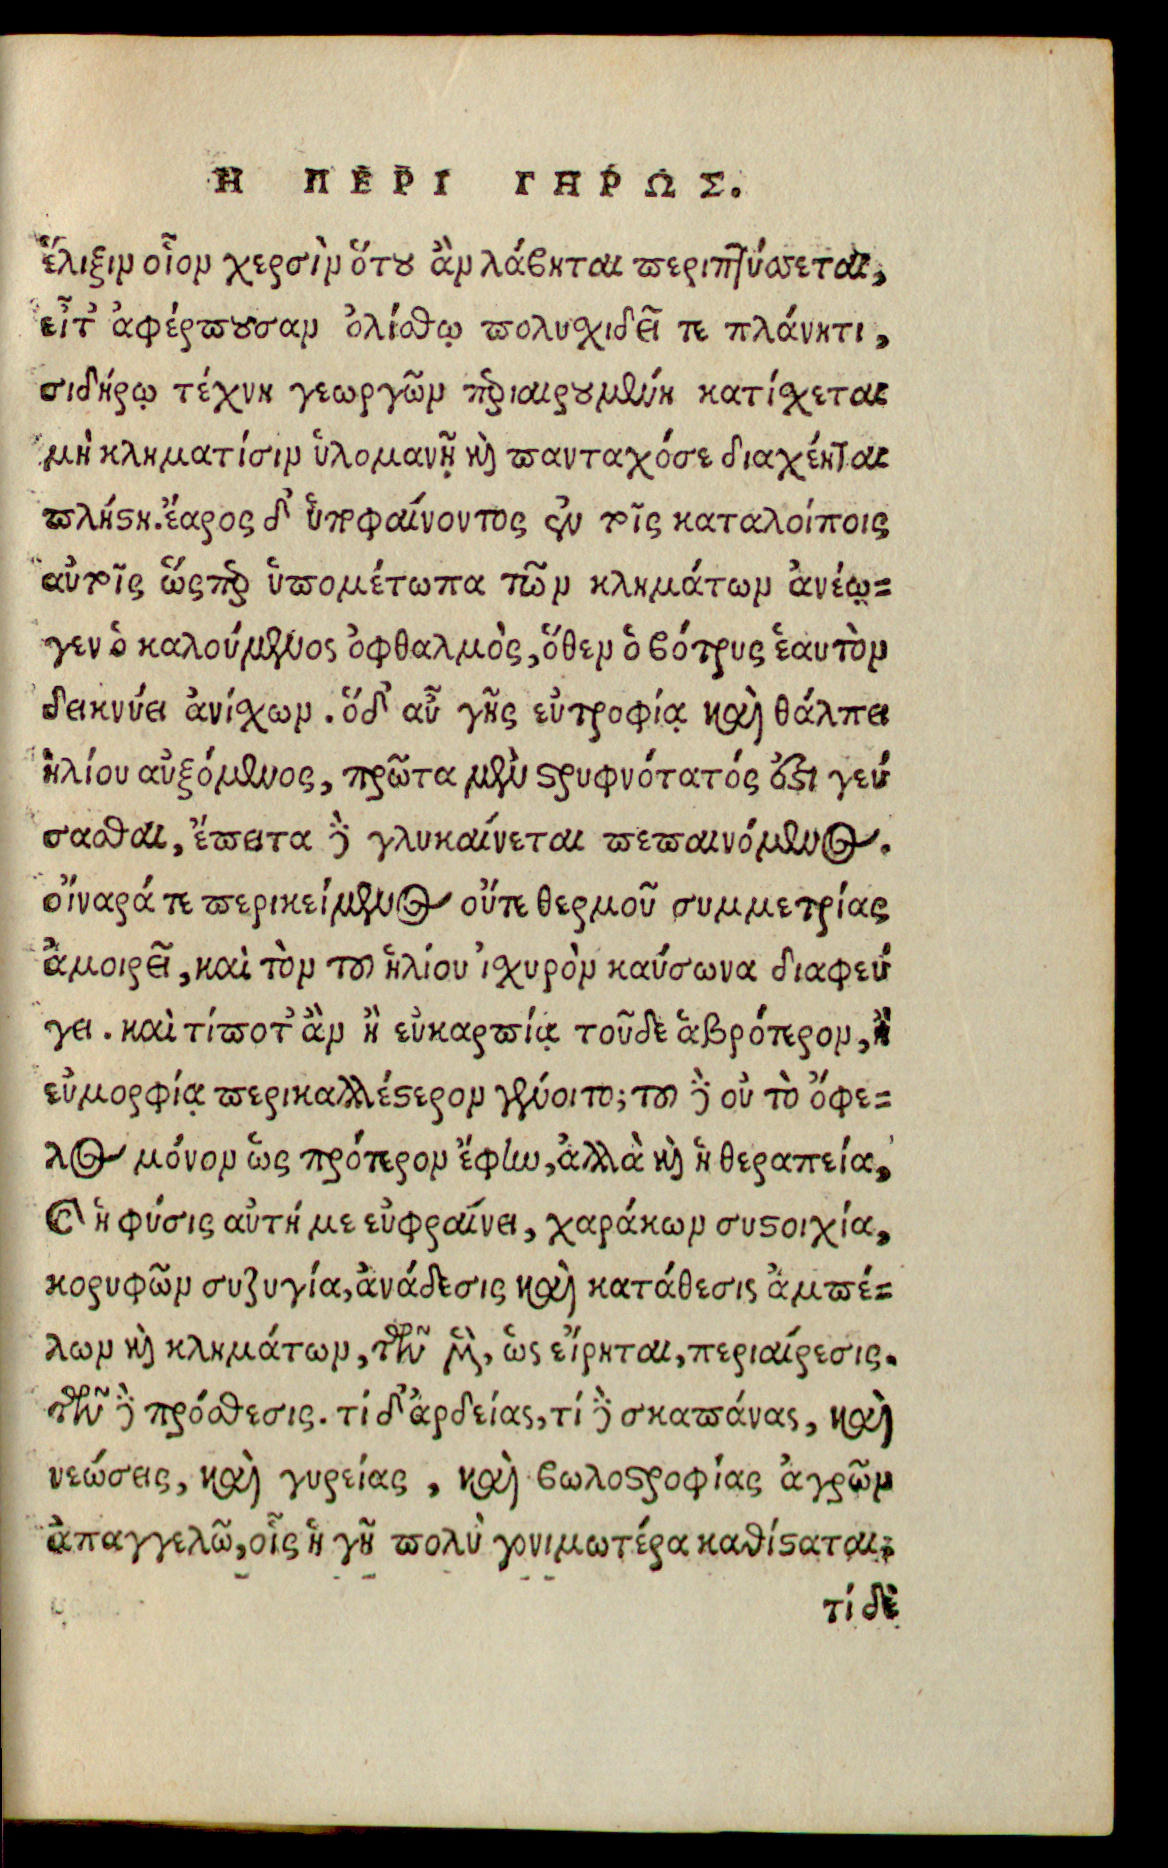 Η ΠΕΡΙ ΓΗΡΩΣ.
ἕλιξιν οἷον χερσὶν ὅτου ἂν λάβηται περιπτύσσεται,
εἶτ' ἀφέρπουσαν ὀλίσθῳ πολυσχιδεῖ τε πλάνητι,
σιδήρῳ τέχνη γεωργῶν περιαιρουμένη κατίσχεται
μὴ κληματίσιν ὑλομανῇ καὶ πανταχόσε διαχέηται
πλήστη. ἔαρος δ' ὑποφαίνοντος ἐν τοῖς καταλοίποις
αὐτοῖς ὥςπερ ὑπομέτωπα τῶν κλημάτων ἀνέῳ=
γεν ὁ καλούμενος ὀφθαλμὸς, ὅθεν ὁ βότρυς ἑαυτὸν
δεικνύει ἀνίσχων. ὅδ' αὖ γῆς εὐτροφίᾳ καὶ θάλπει
ἡλίου αὐξόμενος, πρῶτα μὲν στρυφνότατός ἐστι γεύ
σασθαι, ἔπειτα δὲ γλυκαίνεται πεπαινόμενος.
οἴναρά τε περικείμενος οὔτε θερμοῦ συμμετρίας
ἀμοιρεῖ, καὶ τὸν τοῦ ἡλίου ἰσχυρὸν καύσωνα διαφεύ
γει. καὶ τίποτ' ἂν ἢ εὐκαρπίᾳ τοῦδε ἁβρότερον, ἢ
εὐμορφίᾳ περικαλλέστερον γένοιτο; τοῦ δὲ οὐ τὸ ὄφε=
λος μόνον ὡς πρότερον ἔφην, ἀλλὰ καὶ ἡ θεραπεία,
καὶ ἡ φύσις αὐτή με εὐφραίνει, χαράκων συστοιχία,
κορυφῶν συζυγία, ἀνάδεσις καὶ κατάθεσις ἀμπέ=
λων καὶ κλημάτων, τῶν μὲν, ὡς εἴρηται, περιαίρεσις.
τῶν δὲ πρόσθεσις. τί δ' ἀρδείας, τί δὲ σκαπάνας, καὶ
νεώσεις, καὶ γυρείας, καὶ βωλοστροφίας ἀγρῶν
ἀπαγγελῶ, οἷς ἡ γῆ πολὺ γονιμωτέρα καθίσταται;
τί δὲ